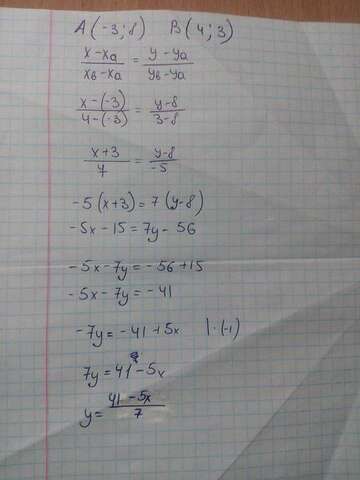 A(-3; 8) B(4; 3)
x-xa/xb-xa = y-ya/yb-ya
x-(-3)/4-(-3) = y-8/3-8
x+3/7 = y-8/-5
-5(x+3)=7(y-8)
-5x-15=7y-56
-5x-7y=-56+15
-5x-7y=-41
-7y=-41+5x |·(-1)
7y=41-5x
y=41-5x/7